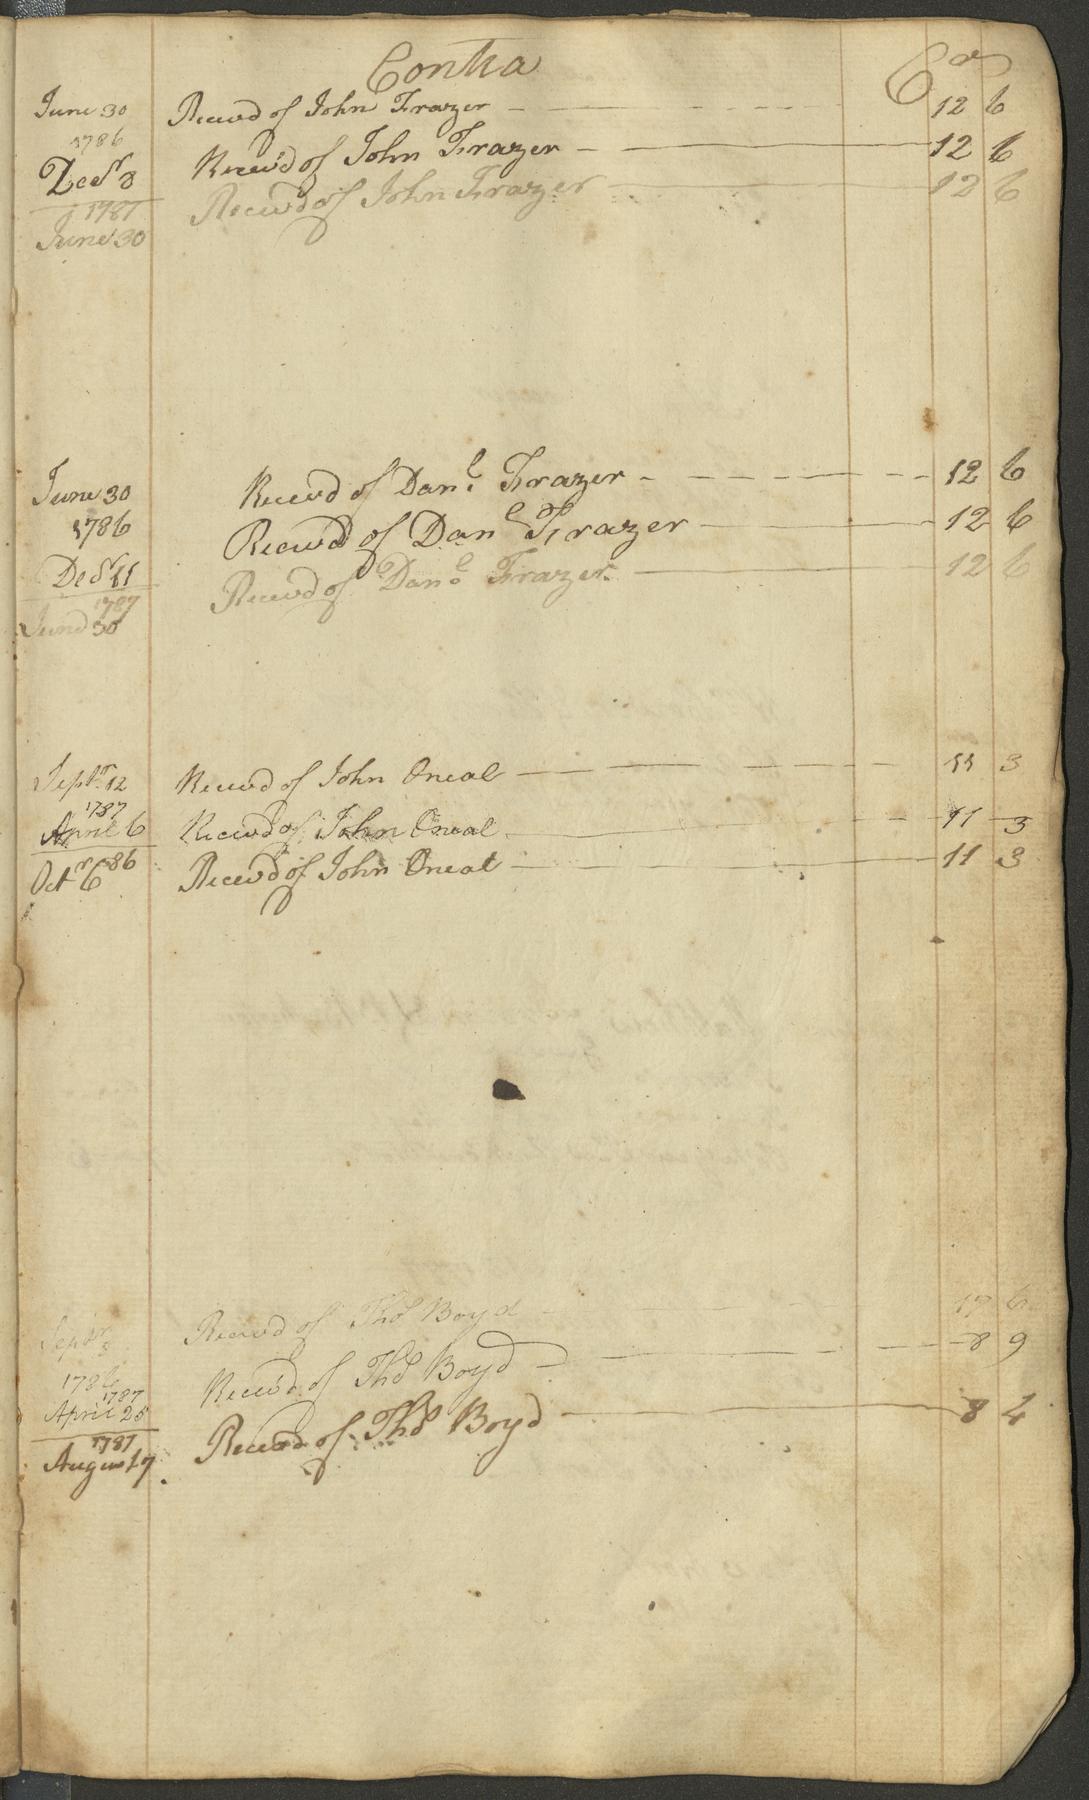 Contra Cr
June 30 Receivd of John Frazer 12 6
1786
Decr 8 Receivd of John Frazer 12 6
1787
June 30 Receivd of John Frazer 12 6
June 30 Receivd of Danl Frazer 12 6
1786
Decr 11 Receivd of Danl Frazer 12 6
1787
June 30 Receivd of Danl Frazer 12 6
Septr 12 Receivd of John Oneal 11 3
1787
April 6 Receivd of John Oneal 11 3
Octr 6 86 Receivd of John Oneal 11 3
Septr Receivd of Thos Boyd 17 6
1786
1787
April 25 Receivd of Thos Boyd 8 9
1787
August 7 Receivd of Thos Boyd 8 4